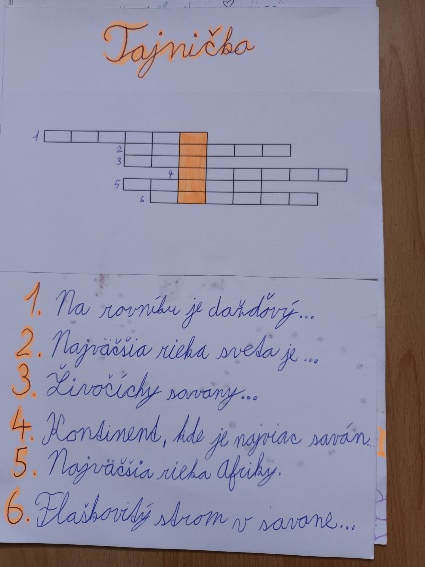 Tajnička
1
2
3
4
5
6
1. Na rovníku je dažďový...
2. Najväčšia rieka sveta je...
3. Živočíchy savany...
4. Kontinent, kde je najviac saván.
5. Najväčšia rieka Afriky.
6. Flaškovitý strom v savane...